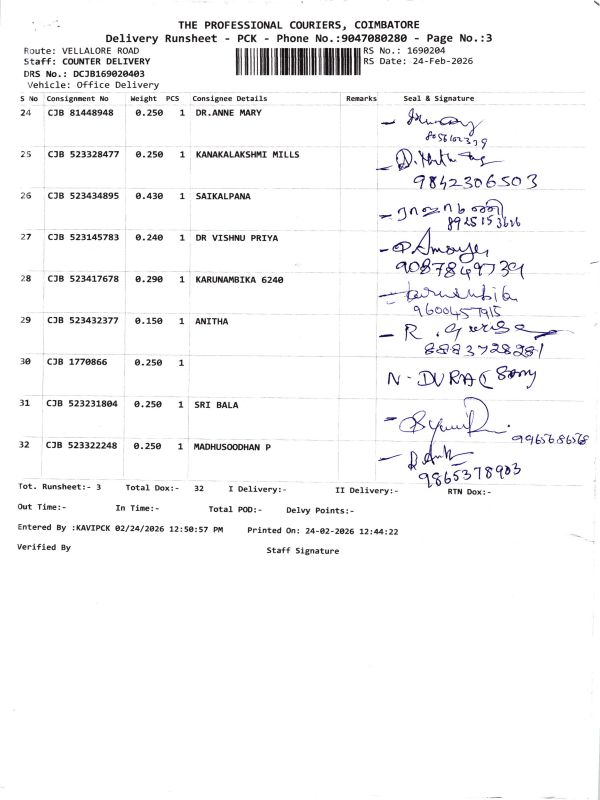 THE PROFESSIONAL COURIERS, COIMBATORE
Delivery Runsheet - PCK - Phone No.:9047080280 - Page No.:3
Route: VELLALORE ROAD RS No.: 1690204
Staff: COUNTER DELIVERY RS Date: 24-Feb-2026
DRS No.: DCJB169020403
Vehicle: Office Delivery
S No Consignment No Weight PCS Consignee Details Remarks Seal & Signature
24 CJB 81448948 0.250 1 DR.ANNE MARY
25 CJB 523328477 0.250 1 KANAKALAKSHMI MILLS
9842306503
26 CJB 523434895 0.430 1 SAIKALPANA
27 CJB 523145783 0.240 1 DR VISHNU PRIYA
9087849739
28 CJB 523417678 0.290 1 KARUNAMBIKA 6240
9600457915
29 CJB 523432377 0.150 1 ANITHA
8883728281
30 CJB 1770866 0.250 1
31 CJB 523231804 0.250 1 SRI BALA
9965686568
32 CJB 523322248 0.250 1 MADHUSOODHAN P
9865378903
Tot. Runsheet:- 3 Total Dox:- 32 I Delivery:- II Delivery:- RTN Dox:-
Out Time:- In Time:- Total POD:- Delvy Points:-
Entered By :KAVIPCK 02/24/2026 12:50:57 PM Printed On: 24-02-2026 12:44:22
Verified By Staff Signature